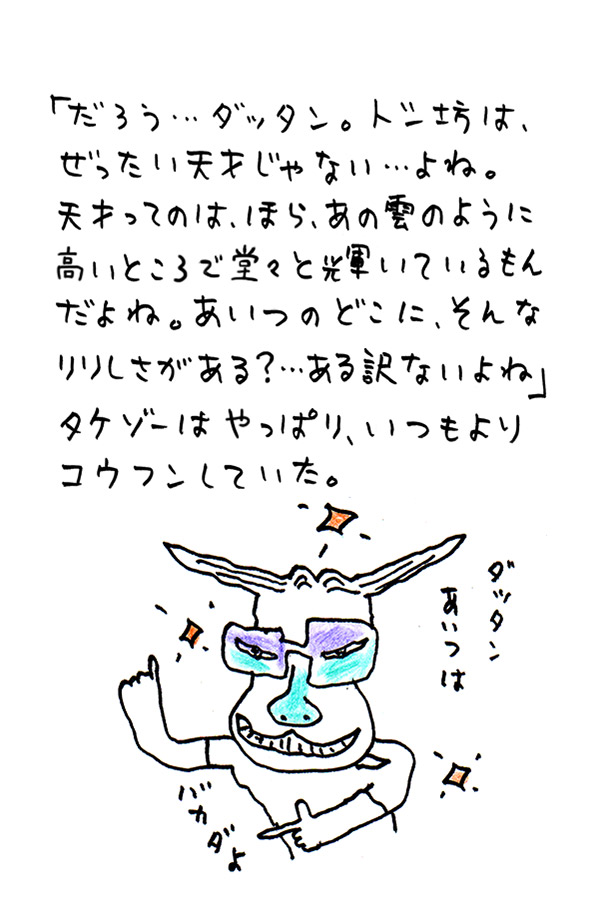 「だろう…ダッタン。トン坊は、
ぜったい天才じゃない…よね。
天才ってのは、ほら、あの雲のように
高いところで堂々と輝いているもん
だよね。あいつのどこに、そんな
りりしさがある?…ある訳ないよね」
タケゾーはやっぱり、いつもより
コウフンしていた。
ダッタン
あいつは
バカダよ